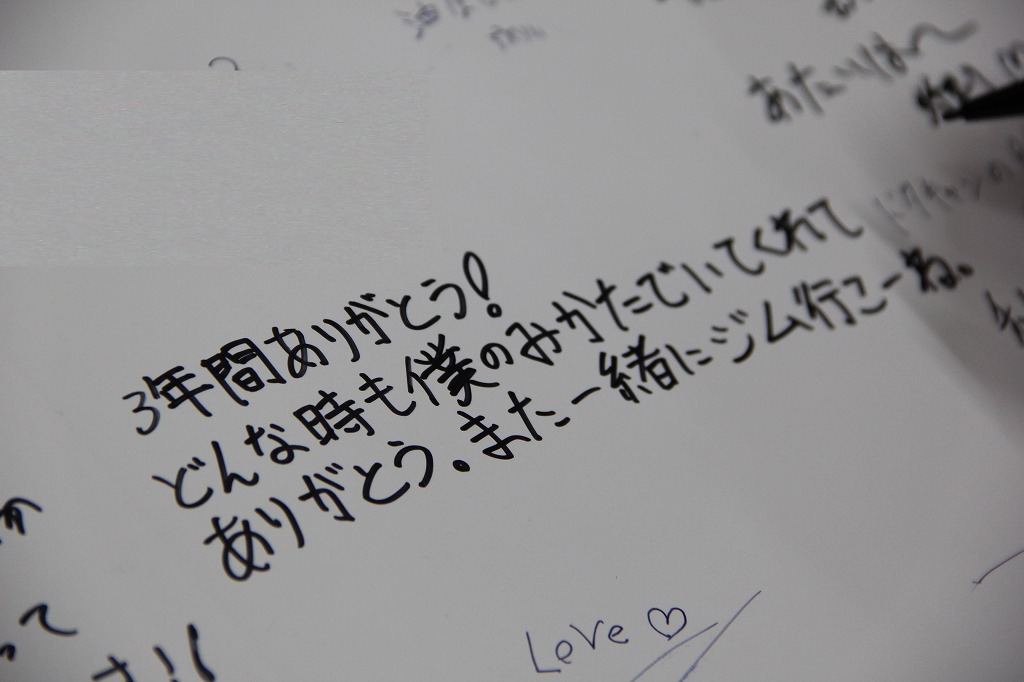 あたりは〜
3年間ありがとう!
どんな時も僕のみかたでいてくれて
ありがとう。また一緒にジム行こーね。
Love ♡